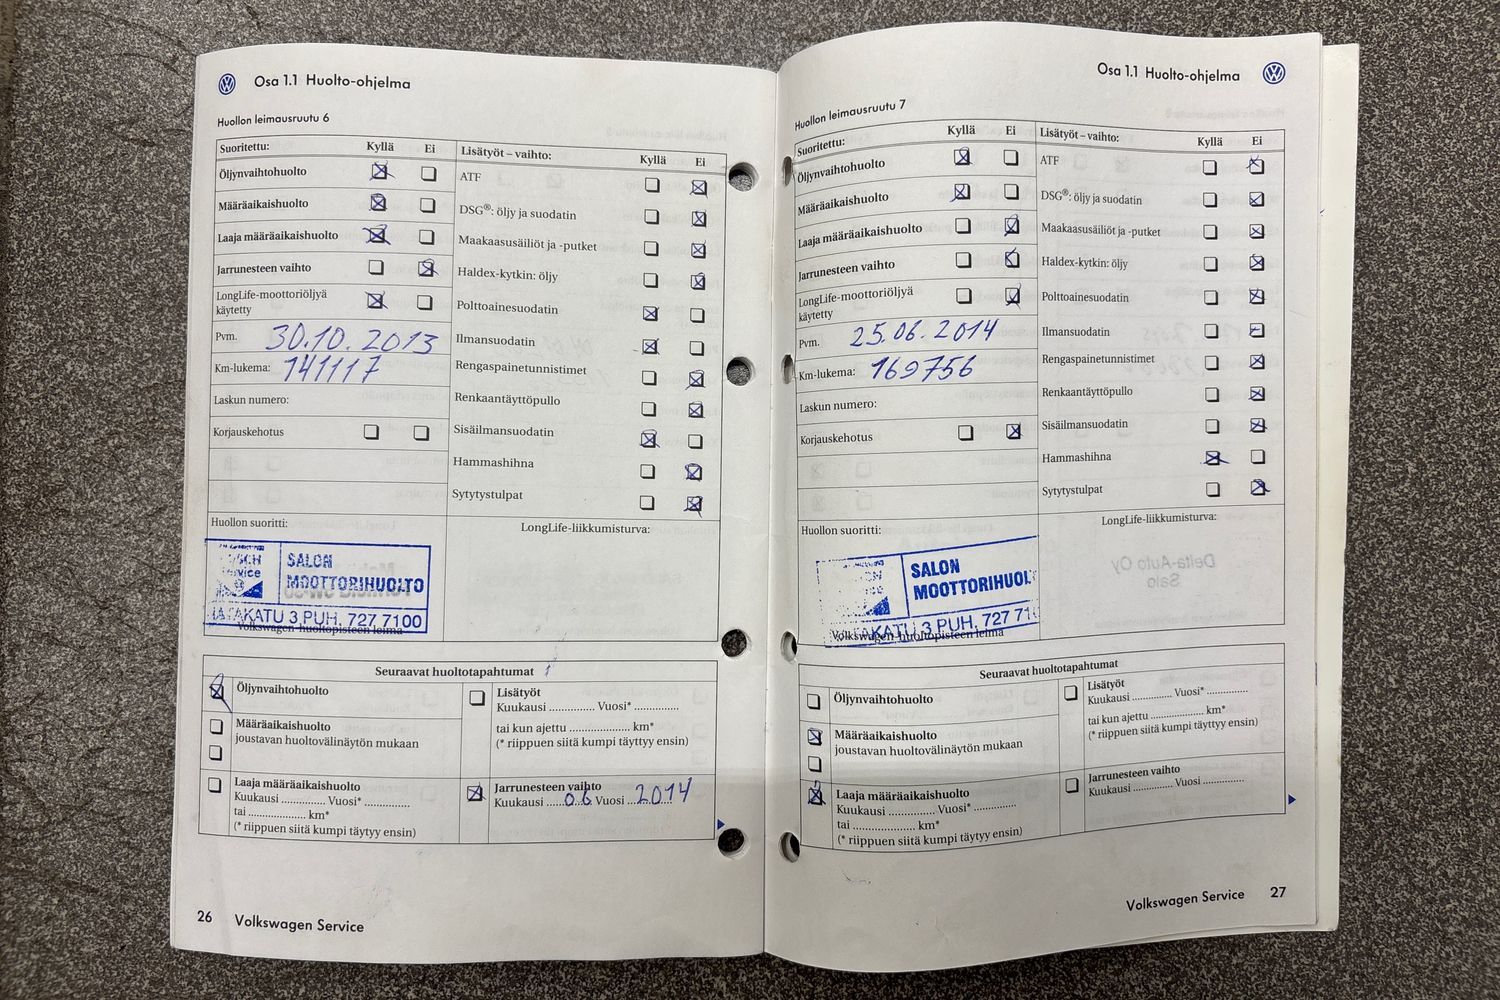 Osa 1.1 Huolto-ohjelma
Huollon leimausruutu 6
Suoritettu: Kyllä Ei
Öljynvaihtohuolto
Määräaikaishuolto
Laaja määräaikaishuolto
Jarrunesteen vaihto
LongLife-moottoriöljyä
käytetty
Pvm. 30.10.2013
Km-lukema: 141117
Laskun numero:
Korjauskehotus
Huollon suoritti:
Lisätyöt – vaihto: Kyllä Ei
ATF
DSG®: öljy ja suodatin
Maakaasusäiliöt ja -putket
Haldex-kytkin: öljy
Polttoainesuodatin
Ilmansuodatin
Rengaspainetunnistimet
Renkaantäyttöpullo
Sisäilmansuodatin
Hammashihna
Sytytystulpat
LongLife-liikkumisturva:
SALON
MOOTTORIHUOLTO
KATU 3 PUH. 727 7100
Volkswagen-huoltopisteen leima
Seuraavat huoltotapahtumat
Öljynvaihtohuolto
Määräaikaishuolto
joustavan huoltovälinäytön mukaan
Laaja määräaikaishuolto
Kuukausi .............. Vuosi* ..............
tai .................... km*
(* riippuen siitä kumpi täytyy ensin)
Lisätyöt
Kuukausi .............. Vuosi* ..............
tai kun ajettu .................... km*
(* riippuen siitä kumpi täyttyy ensin)
Jarrunesteen vaihto
Kuukausi ......06 Vuosi ...2014
26 Volkswagen Service
Osa 1.1 Huolto-ohjelma
Huollon leimausruutu 7
Suoritettu: Kyllä Ei
Öljynvaihtohuolto
Määräaikaishuolto
Laaja määräaikaishuolto
Jarrunesteen vaihto
LongLife-moottoriöljyä
käytetty
Pvm. 25.06.2014
Km-lukema: 169756
Laskun numero:
Korjauskehotus
Huollon suoritti:
Lisätyöt – vaihto: Kyllä Ei
ATF
DSG®: öljy ja suodatin
Maakaasusäiliöt ja -putket
Haldex-kytkin: öljy
Polttoainesuodatin
Ilmansuodatin
Rengaspainetunnistimet
Renkaantäyttöpullo
Sisäilmansuodatin
Hammashihna
Sytytystulpat
LongLife-liikkumisturva:
SALON
MOOTTORIHUOL
KATU 3 PUH. 727 71
Volkswagen-huoltopisteen leima
Seuraavat huoltotapahtumat
Öljynvaihtohuolto
Määräaikaishuolto
joustavan huoltovälinäytön mukaan
Laaja määräaikaishuolto
Kuukausi .............. Vuosi* ..............
tai .................... km*
(* riippuen siitä kumpi täytyy ensin)
Lisätyöt
Kuukausi .............. Vuosi* ..............
tai kun ajettu .................... km*
(* riippuen siitä kumpi täyttyy ensin)
Jarrunesteen vaihto
Kuukausi .............. Vuosi ..............
Volkswagen Service 27